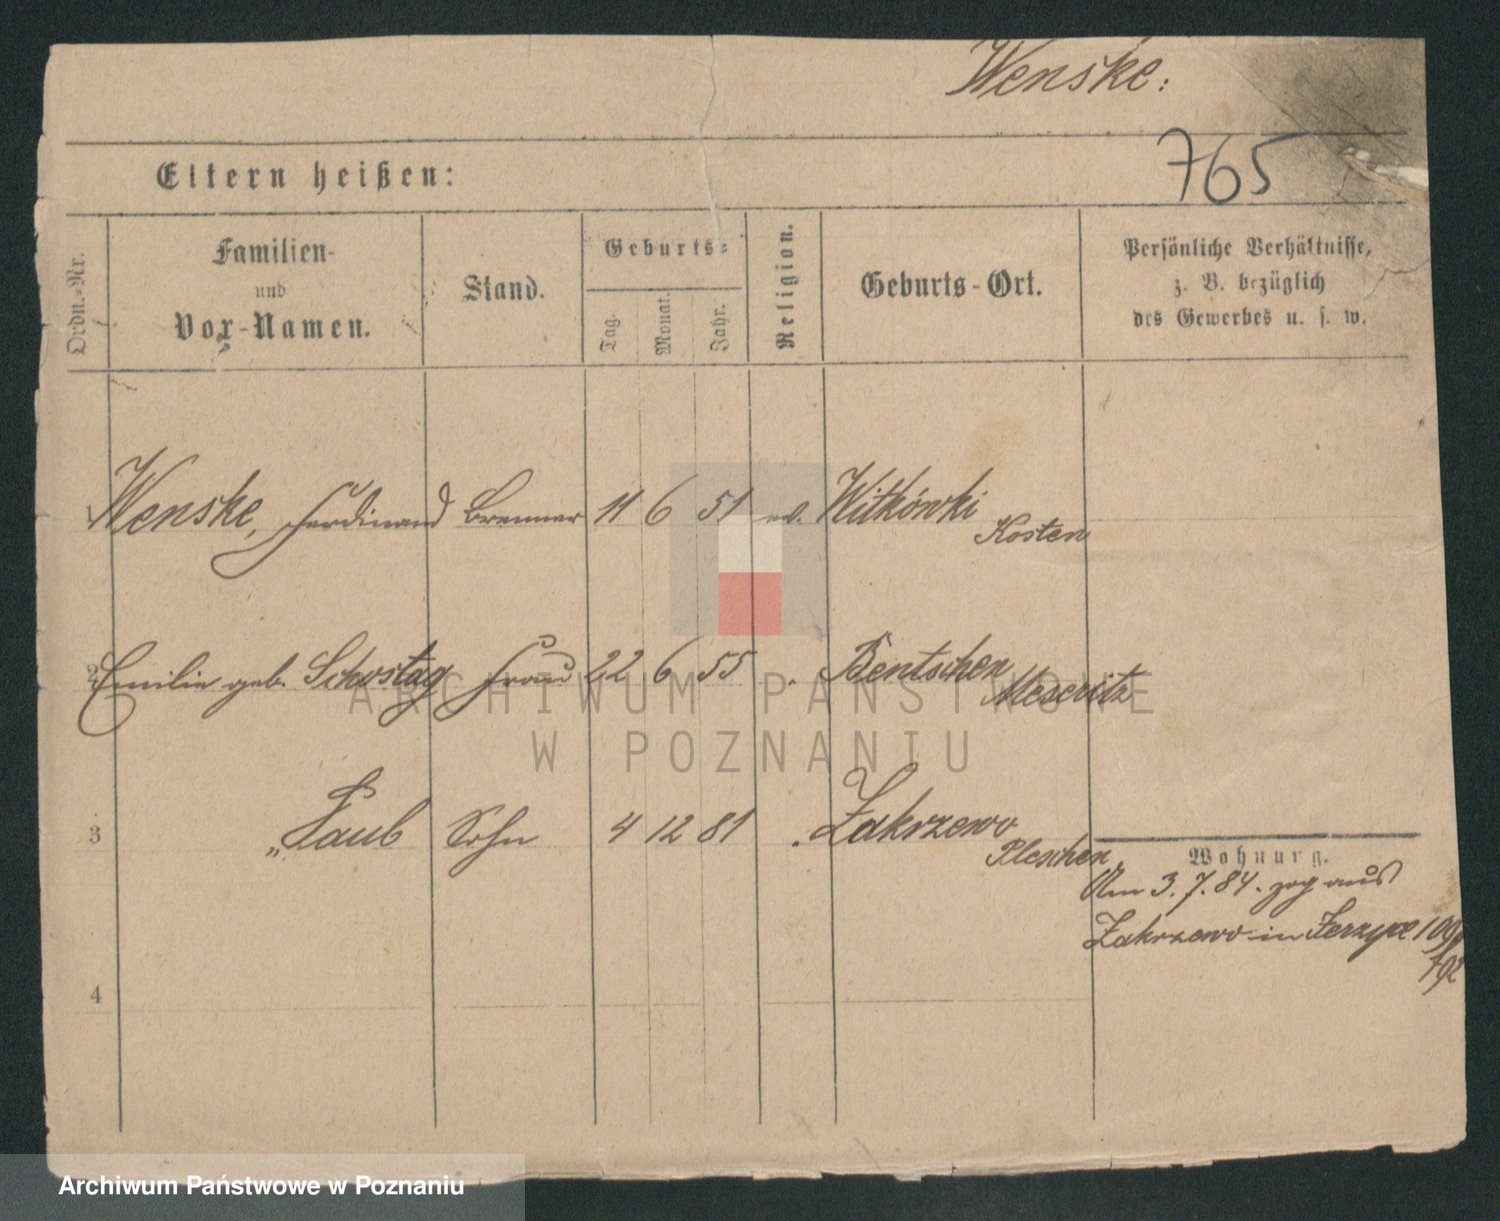 Wenske:
765
Eltern heißen:
Ordn.-Nr.
Familien-
und
Vor-Namen.
Stand.
Geburts-
Tag.
Monat.
Jahr.
Religion.
Geburts-Ort.
Persönliche Verhältnisse,
z. B. bezüglich
des Gewerbes u. s. w.
1 Wenske, Ferdinand Brenner 11 6 51 ev. Witkówki
Kosten
2 Emilie geb. Schostag Frau 22 6 55 Bentschen
Meseritz
3 " Paul Sohn 4 12 81 Zakrzewo
Pleschen
Wohnung.
Am 3. 7. 84. zog aus
Zakrzewo in Jerzyce 109
792
4
ARCHIWUM PAŃSTWOWE
W POZNANIU
Archiwum Państwowe w Poznaniu